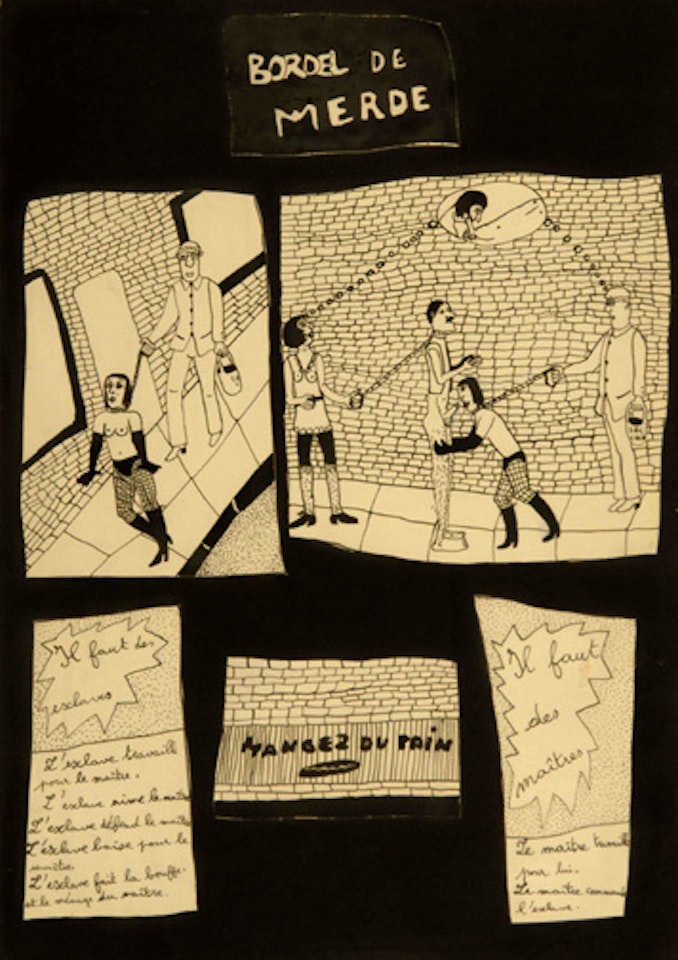 BORDEL DE
MERDE
Il faut des
esclaves
L'esclave travaille
pour le maître.
L'esclave aime le maître
L'esclave défend le maître
L'esclave baise pour le
maître.
L'esclave fait la bouffe
et le ménage du maître.
MANGEZ DU PAIN
Il faut
des
maîtres
Le maître travaille
pour lui.
Le maître commande
l'esclave.